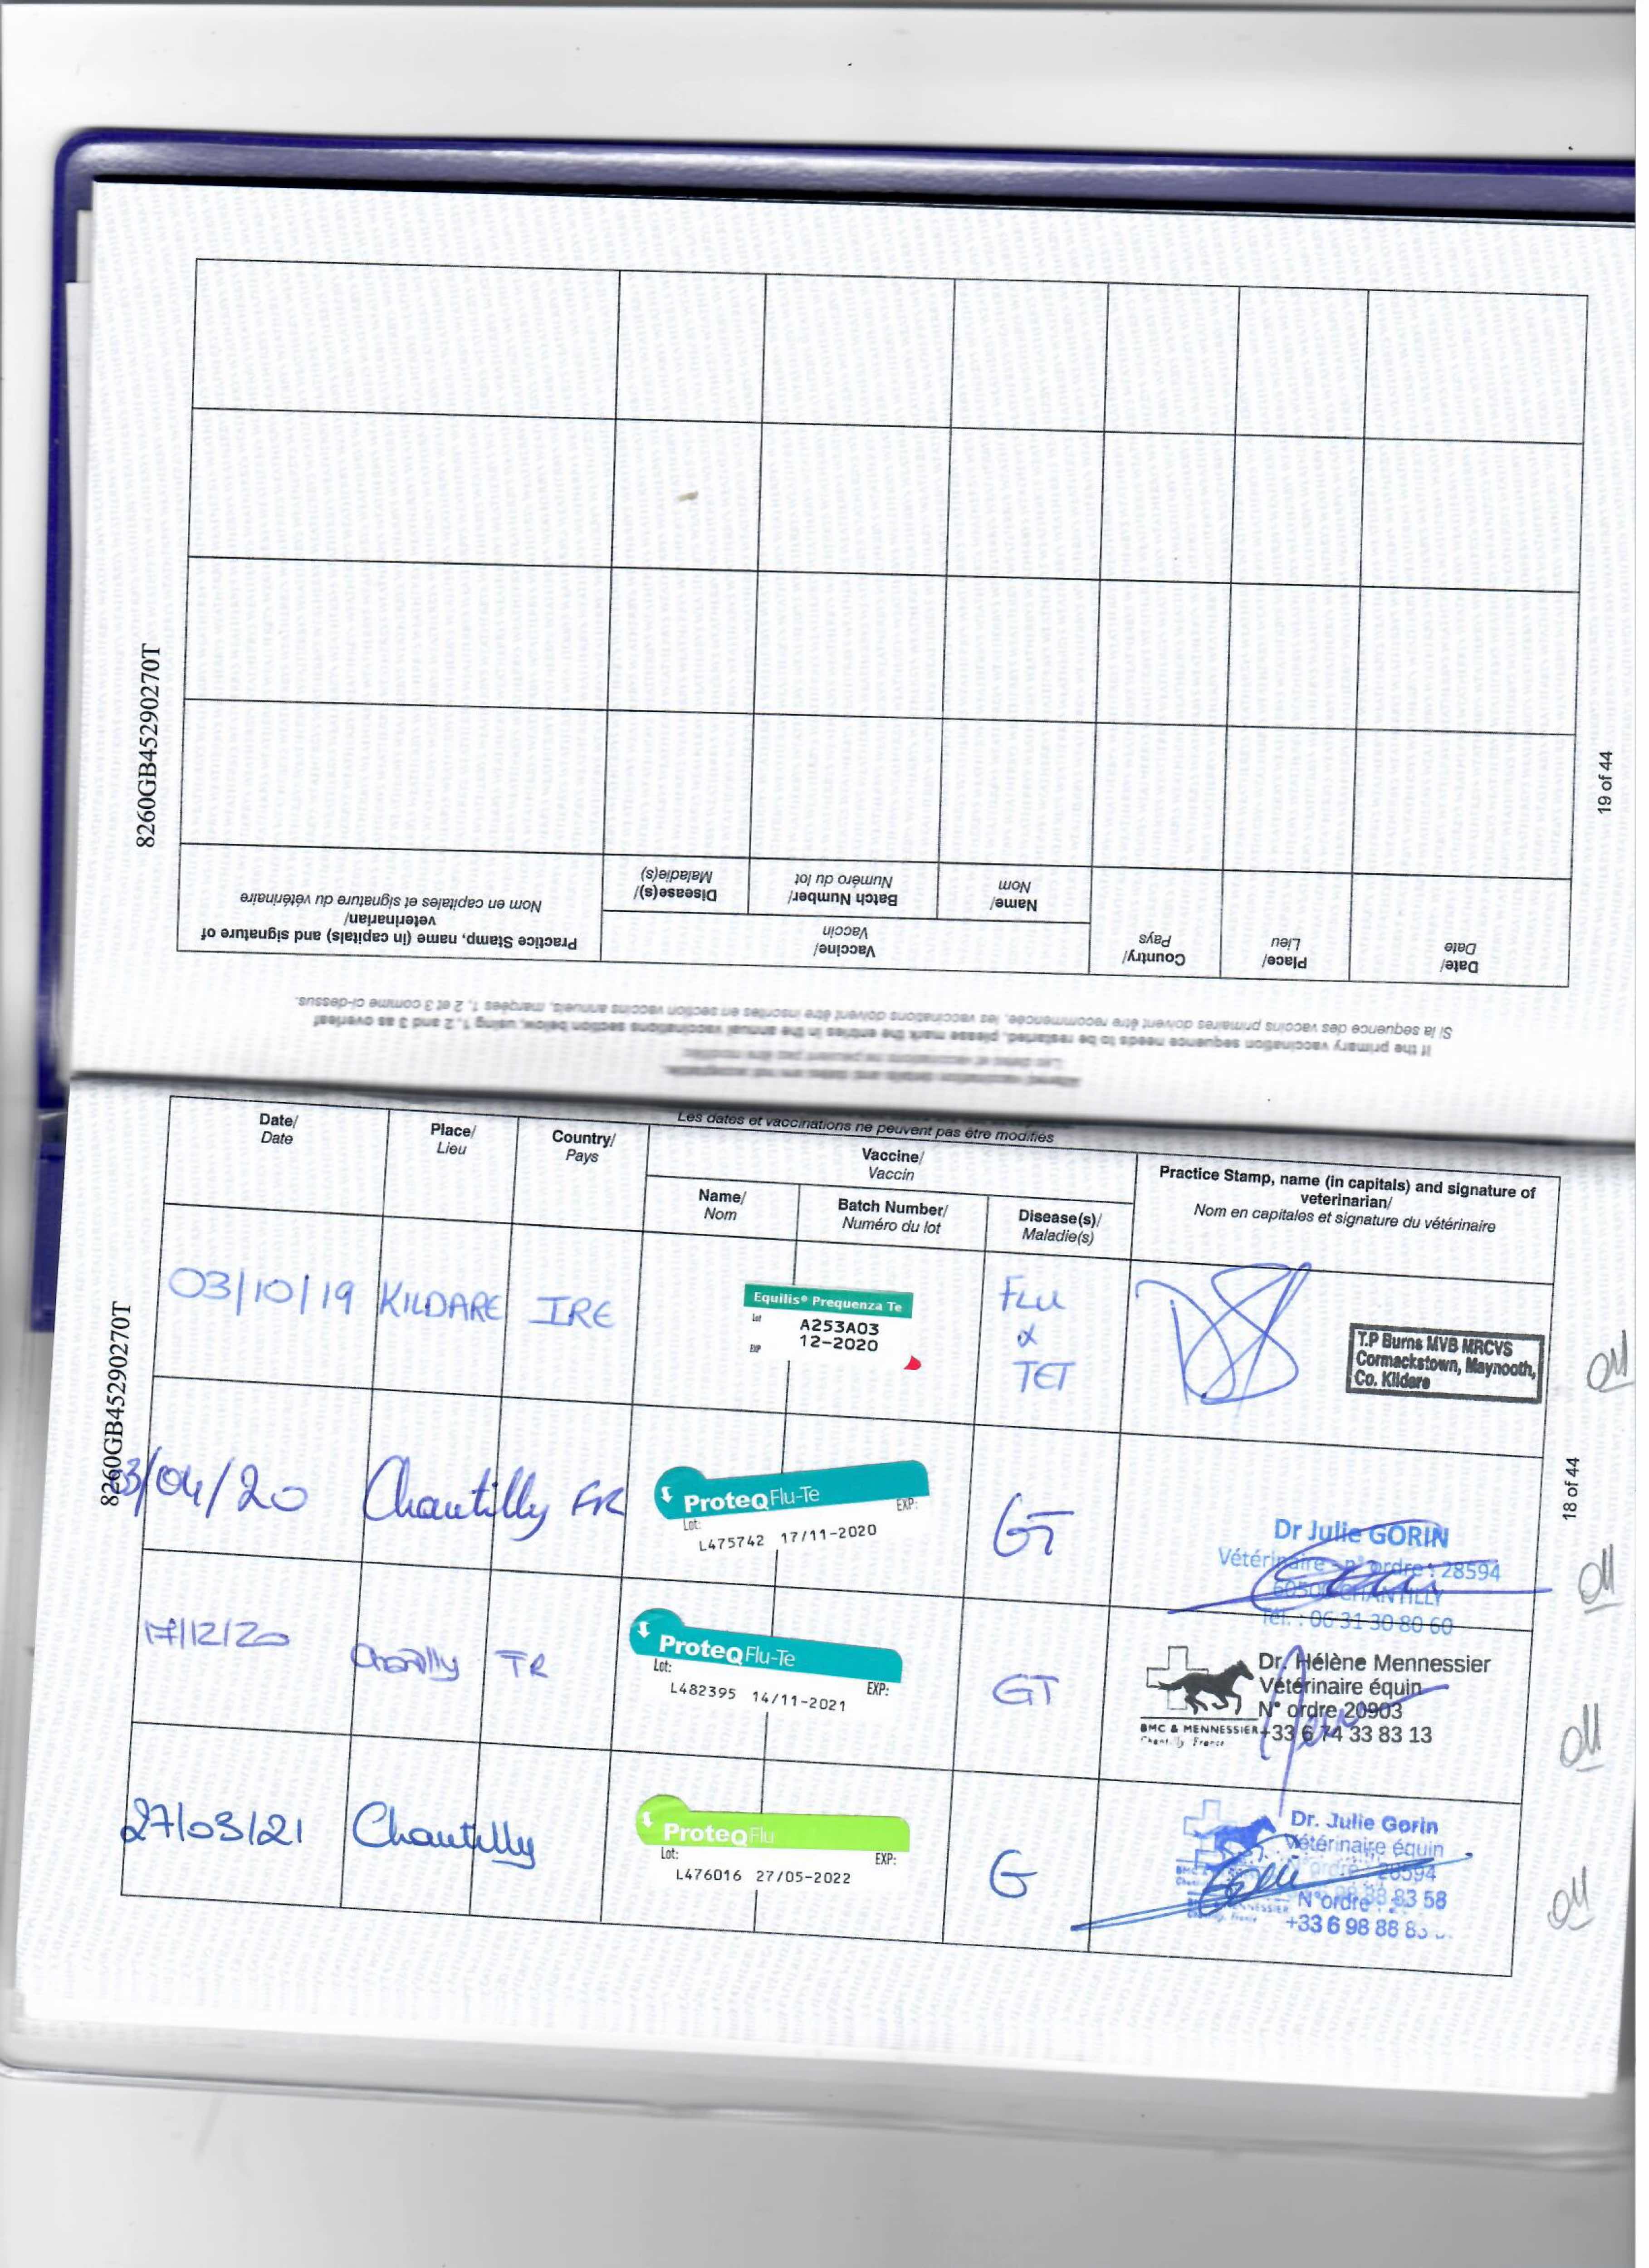 8260GB45290270T
19 of 44
Altered vaccination details and dates are not acceptable.
Les dates et vaccinations ne peuvent pas être modifiés
If the primary vaccination sequence needs to be restarted, please mark the entries in the annual vaccinations section below, using 1, 2 and 3 as overleaf
Si la sequence des vaccins primaires doivent être recommencée, les vaccinations doivent être inscrites en section vaccins annuels, marqées 1, 2 et 3 comme ci-dessus.
Date/
Date
Place/
Lieu
Country/
Pays
Vaccine/
Vaccin
Name/
Nom
Batch Number/
Numéro du lot
Disease(s)/
Maladie(s)
Practice Stamp, name (in capitals) and signature of
veterinarian/
Nom en capitales et signature du vétérinaire
Les dates et vaccinations ne peuvent pas être modifiés
Date/
Date
Place/
Lieu
Country/
Pays
Vaccine/
Vaccin
Name/
Nom
Batch Number/
Numéro du lot
Disease(s)/
Maladie(s)
Practice Stamp, name (in capitals) and signature of
veterinarian/
Nom en capitales et signature du vétérinaire
8260GB45290270T
18 of 44
03/10/19 KILDARE IRE
Equilis® Prequenza Te
Lot A253A03
EXP 12-2020
FLU
&
TET
T.P Burns MVB MRCVS
Cormackstown, Maynooth,
Co. Kildare
03/04/20 Chantilly FR
ProteqFlu-Te
Lot: EXP:
L475742 17/11-2020
GT
Dr Julie GORIN
Vétérinaire - n° ordre : 28594
60500 CHANTILLY
Tél. : 06 31 30 80 60
17/12/20 FR
ProteqFlu-Te
Lot: EXP:
L482395 14/11-2021
GT
Dr. Hélène Mennessier
Vétérinaire équin
N° ordre 20903
BMC & MENNESSIER +33 6 74 33 83 13
Chantilly France
27/03/21 Chantilly
ProteqFlu
Lot: EXP:
L476016 27/05-2022
G
Dr. Julie Gorin
Vétérinaire équin
N° ordre : 28594
N° ordre : 83 58
+33 6 98 88 83